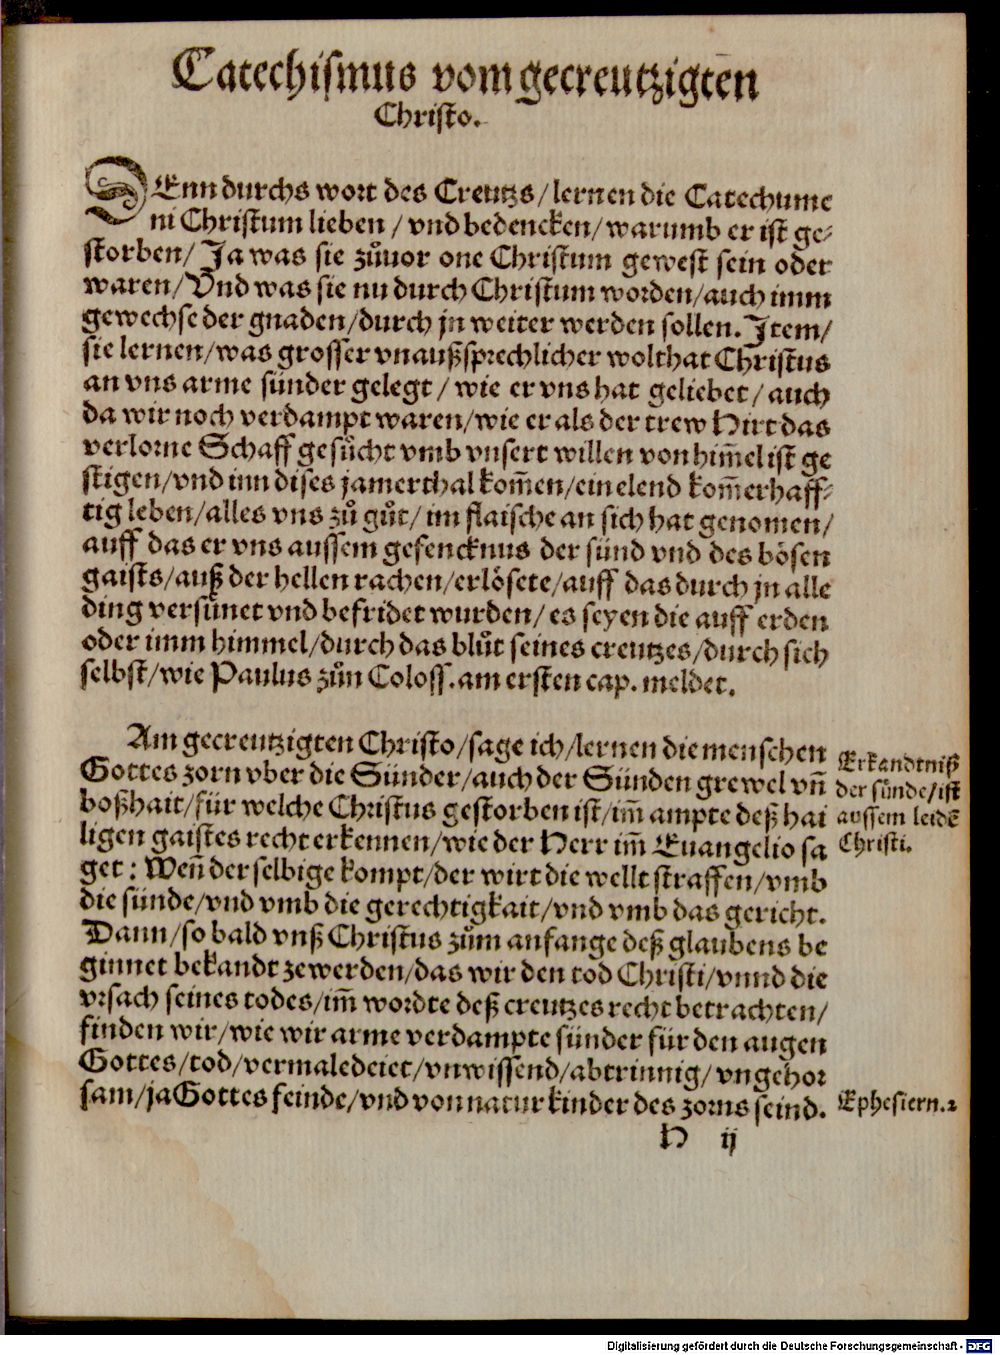 Catechismus vom gecreutzigten
Christo.
DEnn durchs wort des Creutzs / lernen die Catechume
ni Christum lieben / vnd bedencken / warumb er ist ge⸗
storben / Ja was sie zůuor one Christum gewest sein oder
waren / Vnd was sie nu durch Christum worden / auch imm
gewechse der gnaden / durch jn weiter werden sollen. Item /
sie lernen / was grosser vnaußsprechlicher wolthat Christus
an vns arme sünder gelegt / wie er vns hat geliebet / auch
da wir noch verdampt waren / wie er als der trew Hirt das
verlorne Schaff gesůcht vmb vnsert willen von him̄el ist ge
stigen / vnd inn dises jamerthal kom̄en / ein elend kom̄erhaff⸗
tig leben / alles vns zů gůt / im flaische an sich hat genomen /
auff das er vns aussem gefencknus der sünd vnd des bösen
gaists / auß der hellen rachen / erlösete / auff das durch jn alle
ding versünet vnd befridet wurden / es seyen die auff erden
oder imm himmel / durch das blůt seines creutzes / durch sich
selbst / wie Paulus zůn Coloss. am ersten cap. meldet.
Am gecreutzigten Christo / sage ich / lernen die menschen
Gottes zorn vber die Sünder / auch der Sünden grewel vn̄
boßhait / für welche Christus gestorben ist / im̄ ampte deß hai
ligen gaistes recht erkennen / wie der Herr im̄ Euangelio sa
get : Wen̄ der selbige kompt / der wirt die wellt straffen / vmb
die sünde / vnd vmb die gerechtigkait / vnd vmb das gericht.
Dann / so bald vnß Christus zům anfange deß glaubens be
ginnet bekandt zewerden / das wir den tod Christi / vnnd die
vrsach seines todes / im̄ wordte deß creutzes recht betrachten /
finden wir / wie wir arme verdampte sünder für den augen
Gottes / tod / vermaledeiet / vnwissend / abtrinnig / vngehor
sam / ja Gottes feinde / vnd von natur kinder des zorns seind.
Erkandtniß
der sünde / ist
aussem leidē
Christi.
Ephesiern. 2
H ij
Digitalisierung gefördert durch die Deutsche Forschungsgemeinschaft - DFG